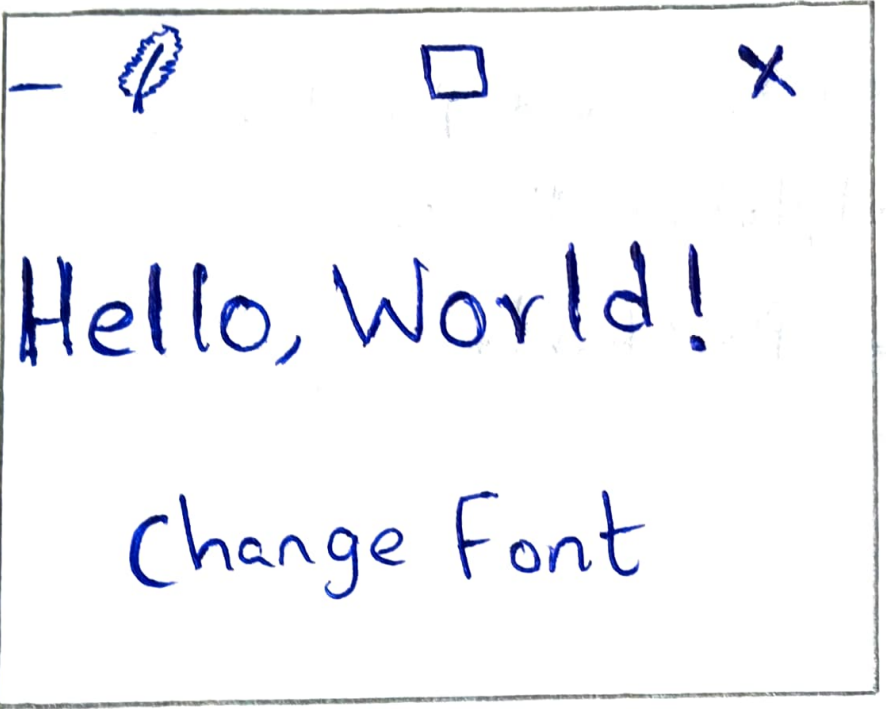 Hello, World!
Change Font